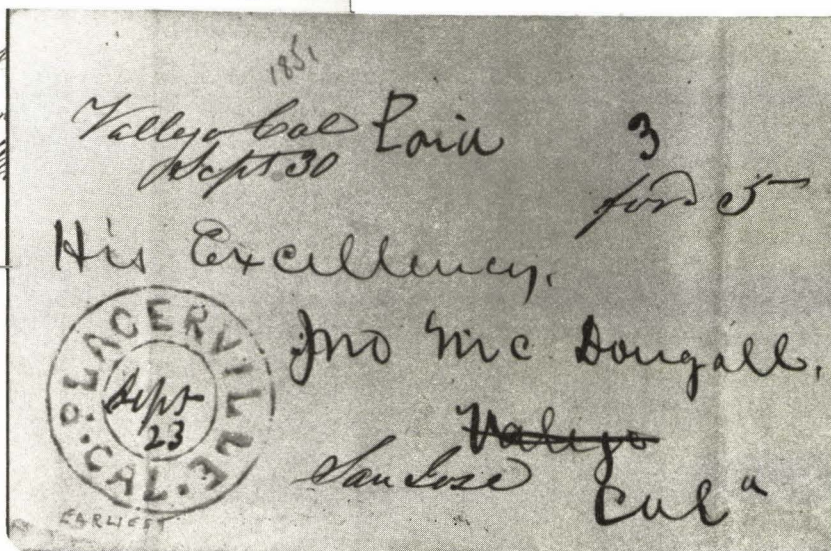 1851
Vallejo Cal Paid 3
Sept 30
ford 5
His Excellency,
Jno Mc Dougall,
Vallejo
San Jose
Cala
PLACERVILLE
CAL.
Sept
23
EARLIEST